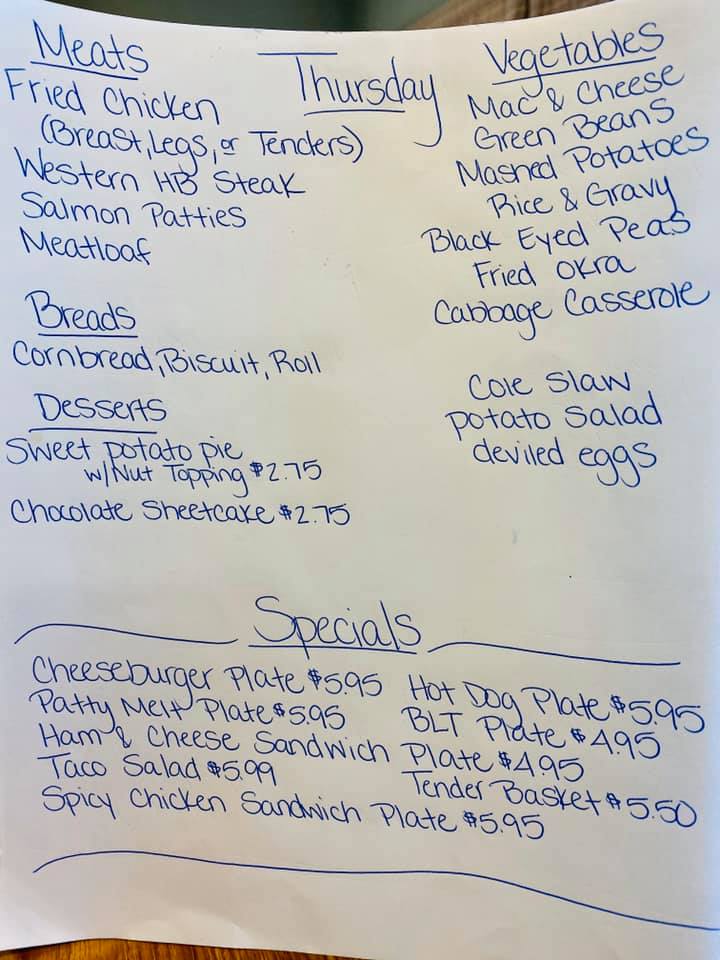 Thursday
Meats
Fried Chicken
(Breast, Legs, or Tenders)
Western HB Steak
Salmon Patties
Meatloaf
Breads
Cornbread, Biscuit, Roll
Desserts
Sweet potato pie
w/Nut Topping $2.75
Chocolate Sheetcake $2.75
Vegetables
Mac & Cheese
Green Beans
Mashed Potatoes
Rice & Gravy
Black Eyed Peas
Fried Okra
Cabbage Casserole
Cole Slaw
potato salad
deviled eggs
Specials
Cheeseburger Plate $5.95 Hot Dog Plate $5.95
Patty Melt Plate $5.95 BLT Plate $4.95
Ham & Cheese Sandwich Plate $4.95
Taco Salad $5.99 Tender Basket $5.50
Spicy Chicken Sandwich Plate $5.95